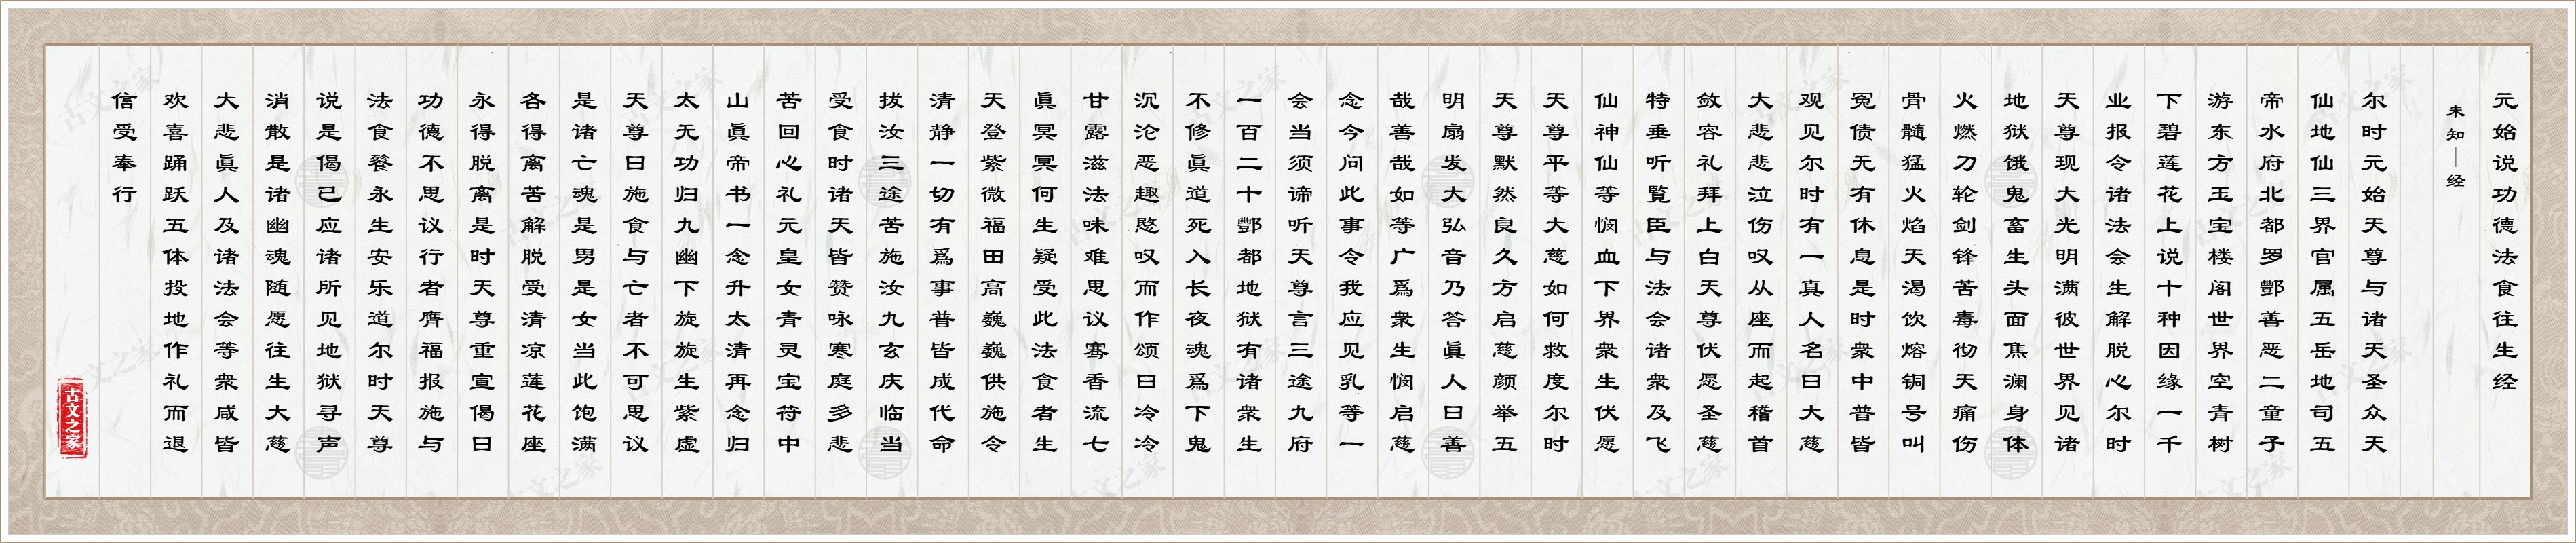 元始说功德法食往生经
未知——经
尔时元始天尊与诸天圣众天
仙地仙三界官属五岳地司五
帝水府北都罗酆善恶二童子
游东方玉宝楼阁世界空青树
下碧莲花上说十种因缘一千
业报令诸法会生解脱心尔时
天尊现大光明满彼世界见诸
地狱饿鬼畜生头面焦澜身体
火燃刀轮剑锋苦毒彻天痛伤
骨髓猛火焰天渴饮熔铜号叫
冤债无有休息是时衆中普皆
观见尔时有一真人名曰大慈
大悲悲泣伤叹从座而起稽首
敛容礼拜上白天尊伏愿圣慈
特垂听覧臣与法会诸衆及飞
仙神仙等悯血下界衆生伏愿
天尊平等大慈如何救度尔时
天尊默然良久方启慈颜举五
明扇发大弘音乃答眞人曰善
哉善哉如等广爲衆生悯启慈
念今问此事令我应见乳等一
会当须谛听天尊言三途九府
一百二十酆都地狱有诸衆生
不修眞道死入长夜魂爲下鬼
沉沦恶趣愍叹而作颂曰冷冷
甘露滋法味难思议骞香流七
眞冥冥何生疑受此法食者生
天登紫微福田高巍巍供施令
清静一切有爲事普皆成代命
拔汝三途苦施汝九玄庆临当
受食时诸天皆赞咏寒庭多悲
苦回心礼元皇女青灵宝符中
山眞帝书一念升太清再念归
太无功归九幽下旋旋生紫虚
天尊曰施食与亡者不可思议
是诸亡魂是男是女当此饱满
各得离苦解脱受清凉莲花座
永得脱离是时天尊重宣偈曰
功德不思议行者膺福报施与
法食餐永生安乐道尔时天尊
说是偈已应诸所见地狱寻声
消散是诸幽魂随愿往生大慈
大悲眞人及诸法会等衆咸皆
欢喜踊跃五体投地作礼而退
信受奉行
古文之家